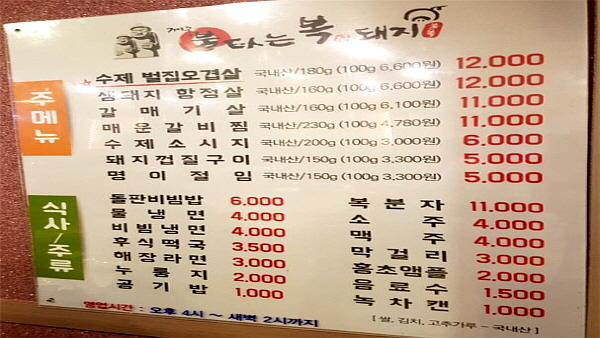 불타는 복 돼지
주메뉴
수제 벌집오겹살 국내산/180g (100g 6,600원) 12.000
생돼지 항정살 국내산/160g (100g 6,600원) 12.000
갈매기살 국내산/160g (100g 6,100원) 11.000
매운갈비찜 국내산/230g (100g 4,780원) 11.000
수제소시지 국내산/200g (100g 3,000원) 6.000
돼지껍질구이 국내산/150g (100g 3,300원) 5.000
명이절임 국내산/150g (100g 3,300원) 5.000
식사/주류
돌판비빔밥 6.000
물냉면 4.000
비빔냉면 4.000
후식떡국 3.500
해장라면 3.000
누룽지 2.000
공기밥 1.000
복분자 11.000
소주 4.000
맥주 4.000
막걸리 3.000
홍초앰플 2.000
음료수 1.500
녹차캔 1.000
영업시간 : 오후 4시 ~ 새벽 2시까지
[ 쌀, 김치, 고추가루 - 국내산 ]